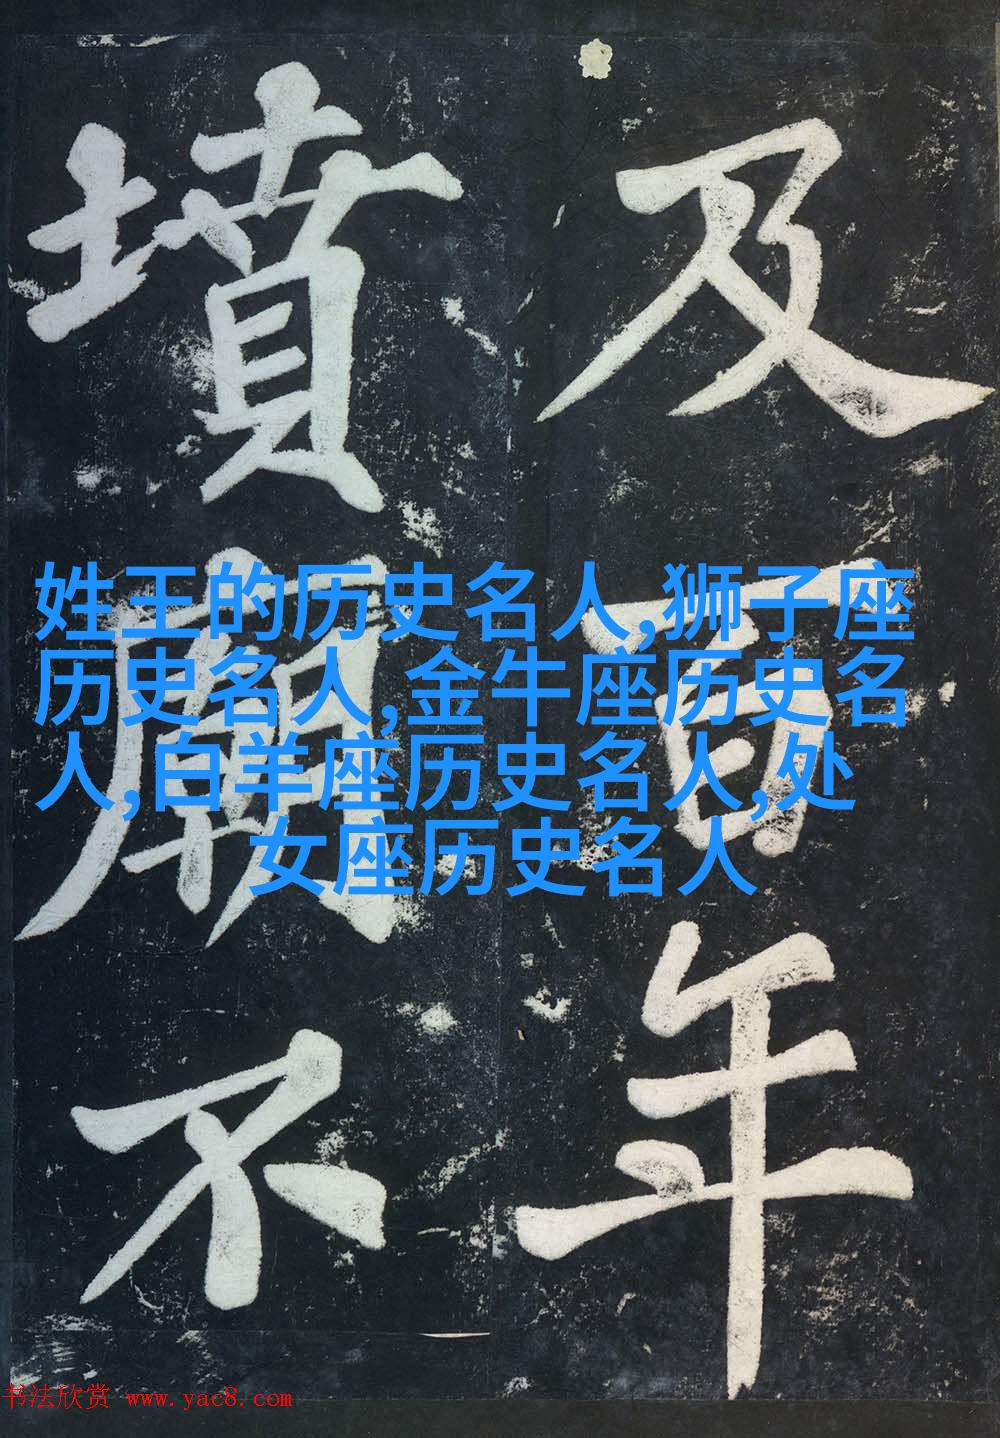 及百年
墳廟不
姓王的历史名人,狮子座
历史名人,金牛座历史名
人,白羊座历史名人,处
女座历史名人
书法欣赏 www.yac8.com